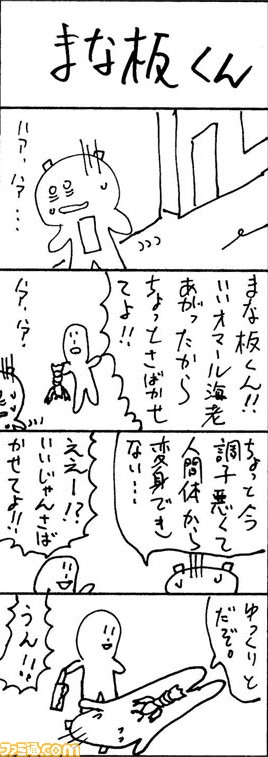 まな板くん
ハァ、ハァ…
まな板くん!!
いいオマール海老
あがったから
ちょっとさばかせ
てよ!!
ハァ、ハァ、
ちょっと今
調子悪くて
人間体から
変身でき
ない…
ええー!?
いいじゃんさば
かせてよ!!
ゆっくりと
だぞ。
うん!!
ファミ通.com